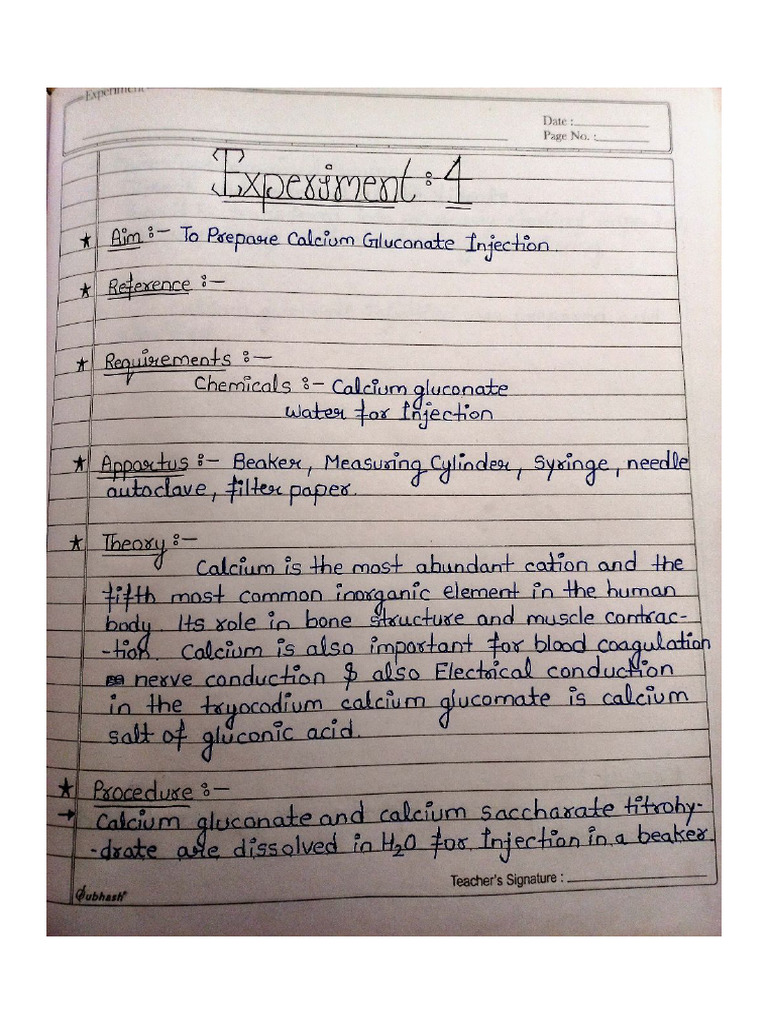 Experiment
Date :
Page No. :
Experiment : 4
★ Aim :- To Prepare Calcium Gluconate Injection
★ Reference :-
★ Requirements :-
Chemicals :- Calcium gluconate
Water for Injection
★ Appartus :- Beaker, Measuring Cylinder, Syringe, needle
autoclave, filter paper.
★ Theory :-
Calcium is the most abundant cation and the
fifth most common inorganic element in the human
body. Its role in bone structure and muscle contrac-
-tion. Calcium is also important for blood coagulation
nerve conduction & also Electrical conduction
in the tryocodium calcium glucomate is calcium
salt of gluconic acid.
★ Procedure :-
→ Calcium gluconate and calcium saccharate titrohy-
-drate are dissolved in H2O for Injection in a beaker.
Teacher's Signature :
Subhash